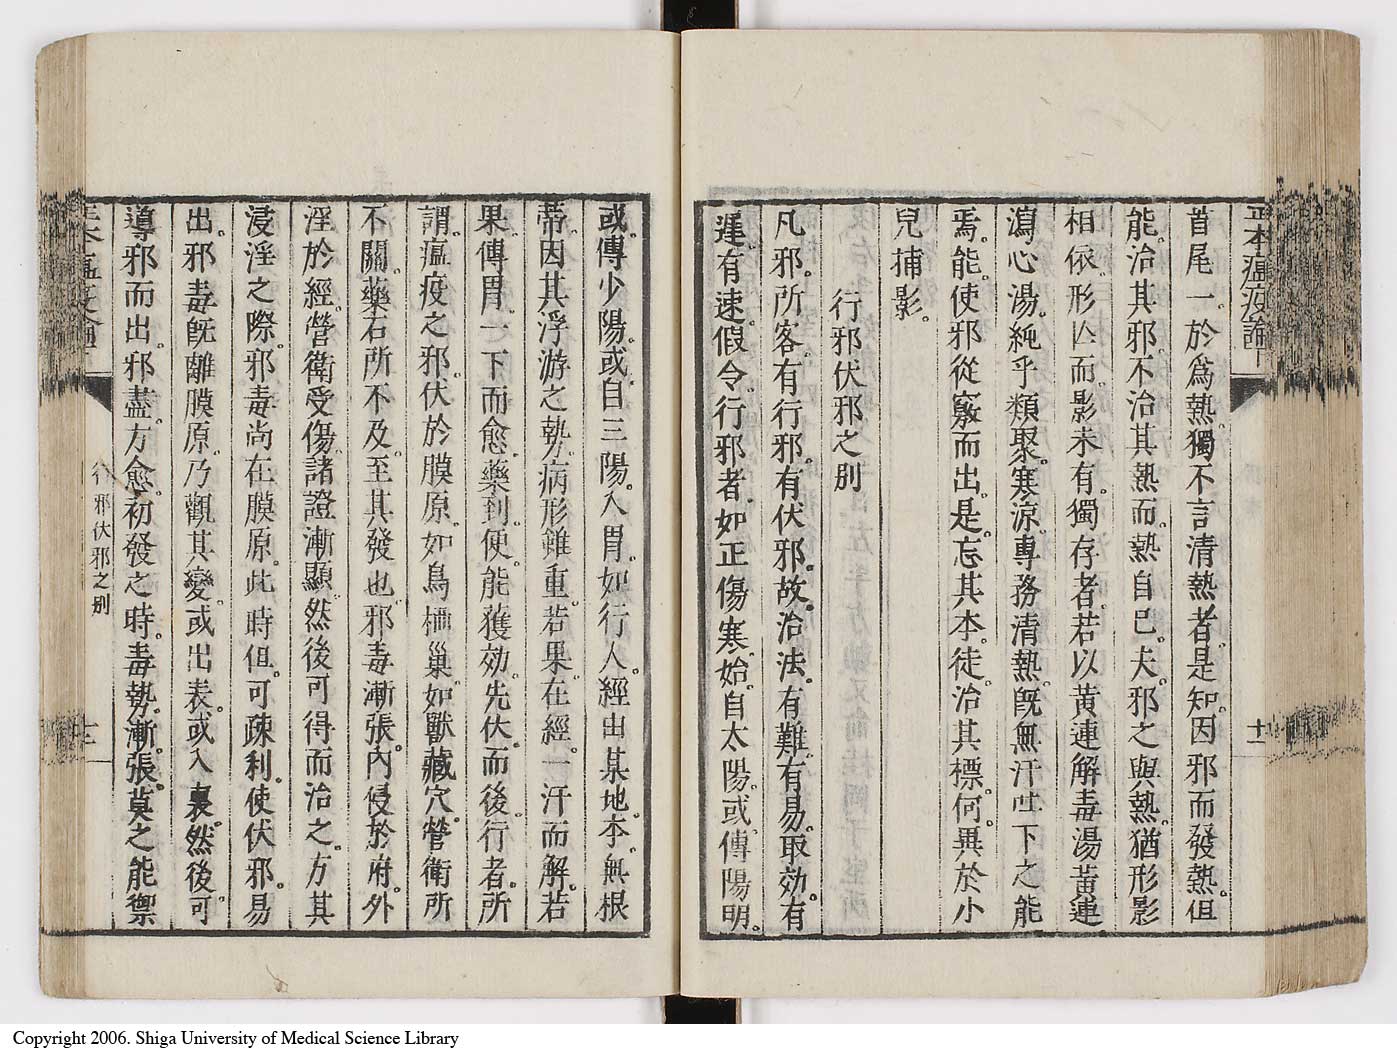 正本瘟疫論
十一
首尾一於爲熱獨不言清熱者是知因邪而發熱但
能治其邪不治其熱而熱自已夫邪之與熱猶形影
相依形亡而影未有獨存者若以黃連解毒湯黃連
瀉心湯純乎類聚寒涼專務清熱旣無汗吐下之能
焉能使邪從竅而出是忘其本徒治其標何異於小
兒捕影
行邪伏邪之別
凡邪所客有行邪有伏邪故治法有難有易取効有
遲有速假令行邪者如正傷寒始自太陽或傳陽明
或傳少陽或自三陽入胃如行人經出某地本無根
蒂因其浮游之勢病形雖重若果在經一汗而解若
果傳胃一下而愈藥到便能獲効先伏而後行者所
謂瘟疫之邪伏於膜原如鳥栖巢如獸藏穴營衛所
不關藥石所不及至其發也邪毒漸張內侵於府外
淫於經營衛受傷諸證漸顯然後可得而治之方其
浸淫之際邪毒尚在膜原此時但可疎利使伏邪易
出邪毒旣離膜原乃觀其變或出表或入裏然後可
導邪而出邪盡方愈初發之時毒勢漸張莫之能禦
行邪伏邪之別
Copyright 2006. Shiga University of Medical Science Library